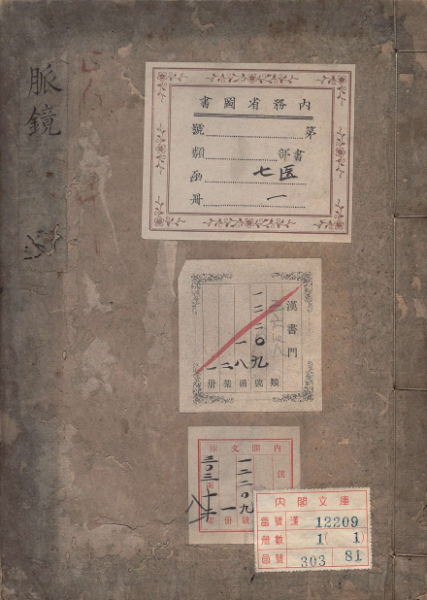 脈鏡
内務省圖書
第 號
書部 類
医七 函
一 冊
漢書門
一二二〇九
一八
類 號 函 架 冊
内閣文庫
一二二〇九
一
三〇三
八十一
内閣文庫
番號 漢 12209
冊數 1(1)
函號 303 81